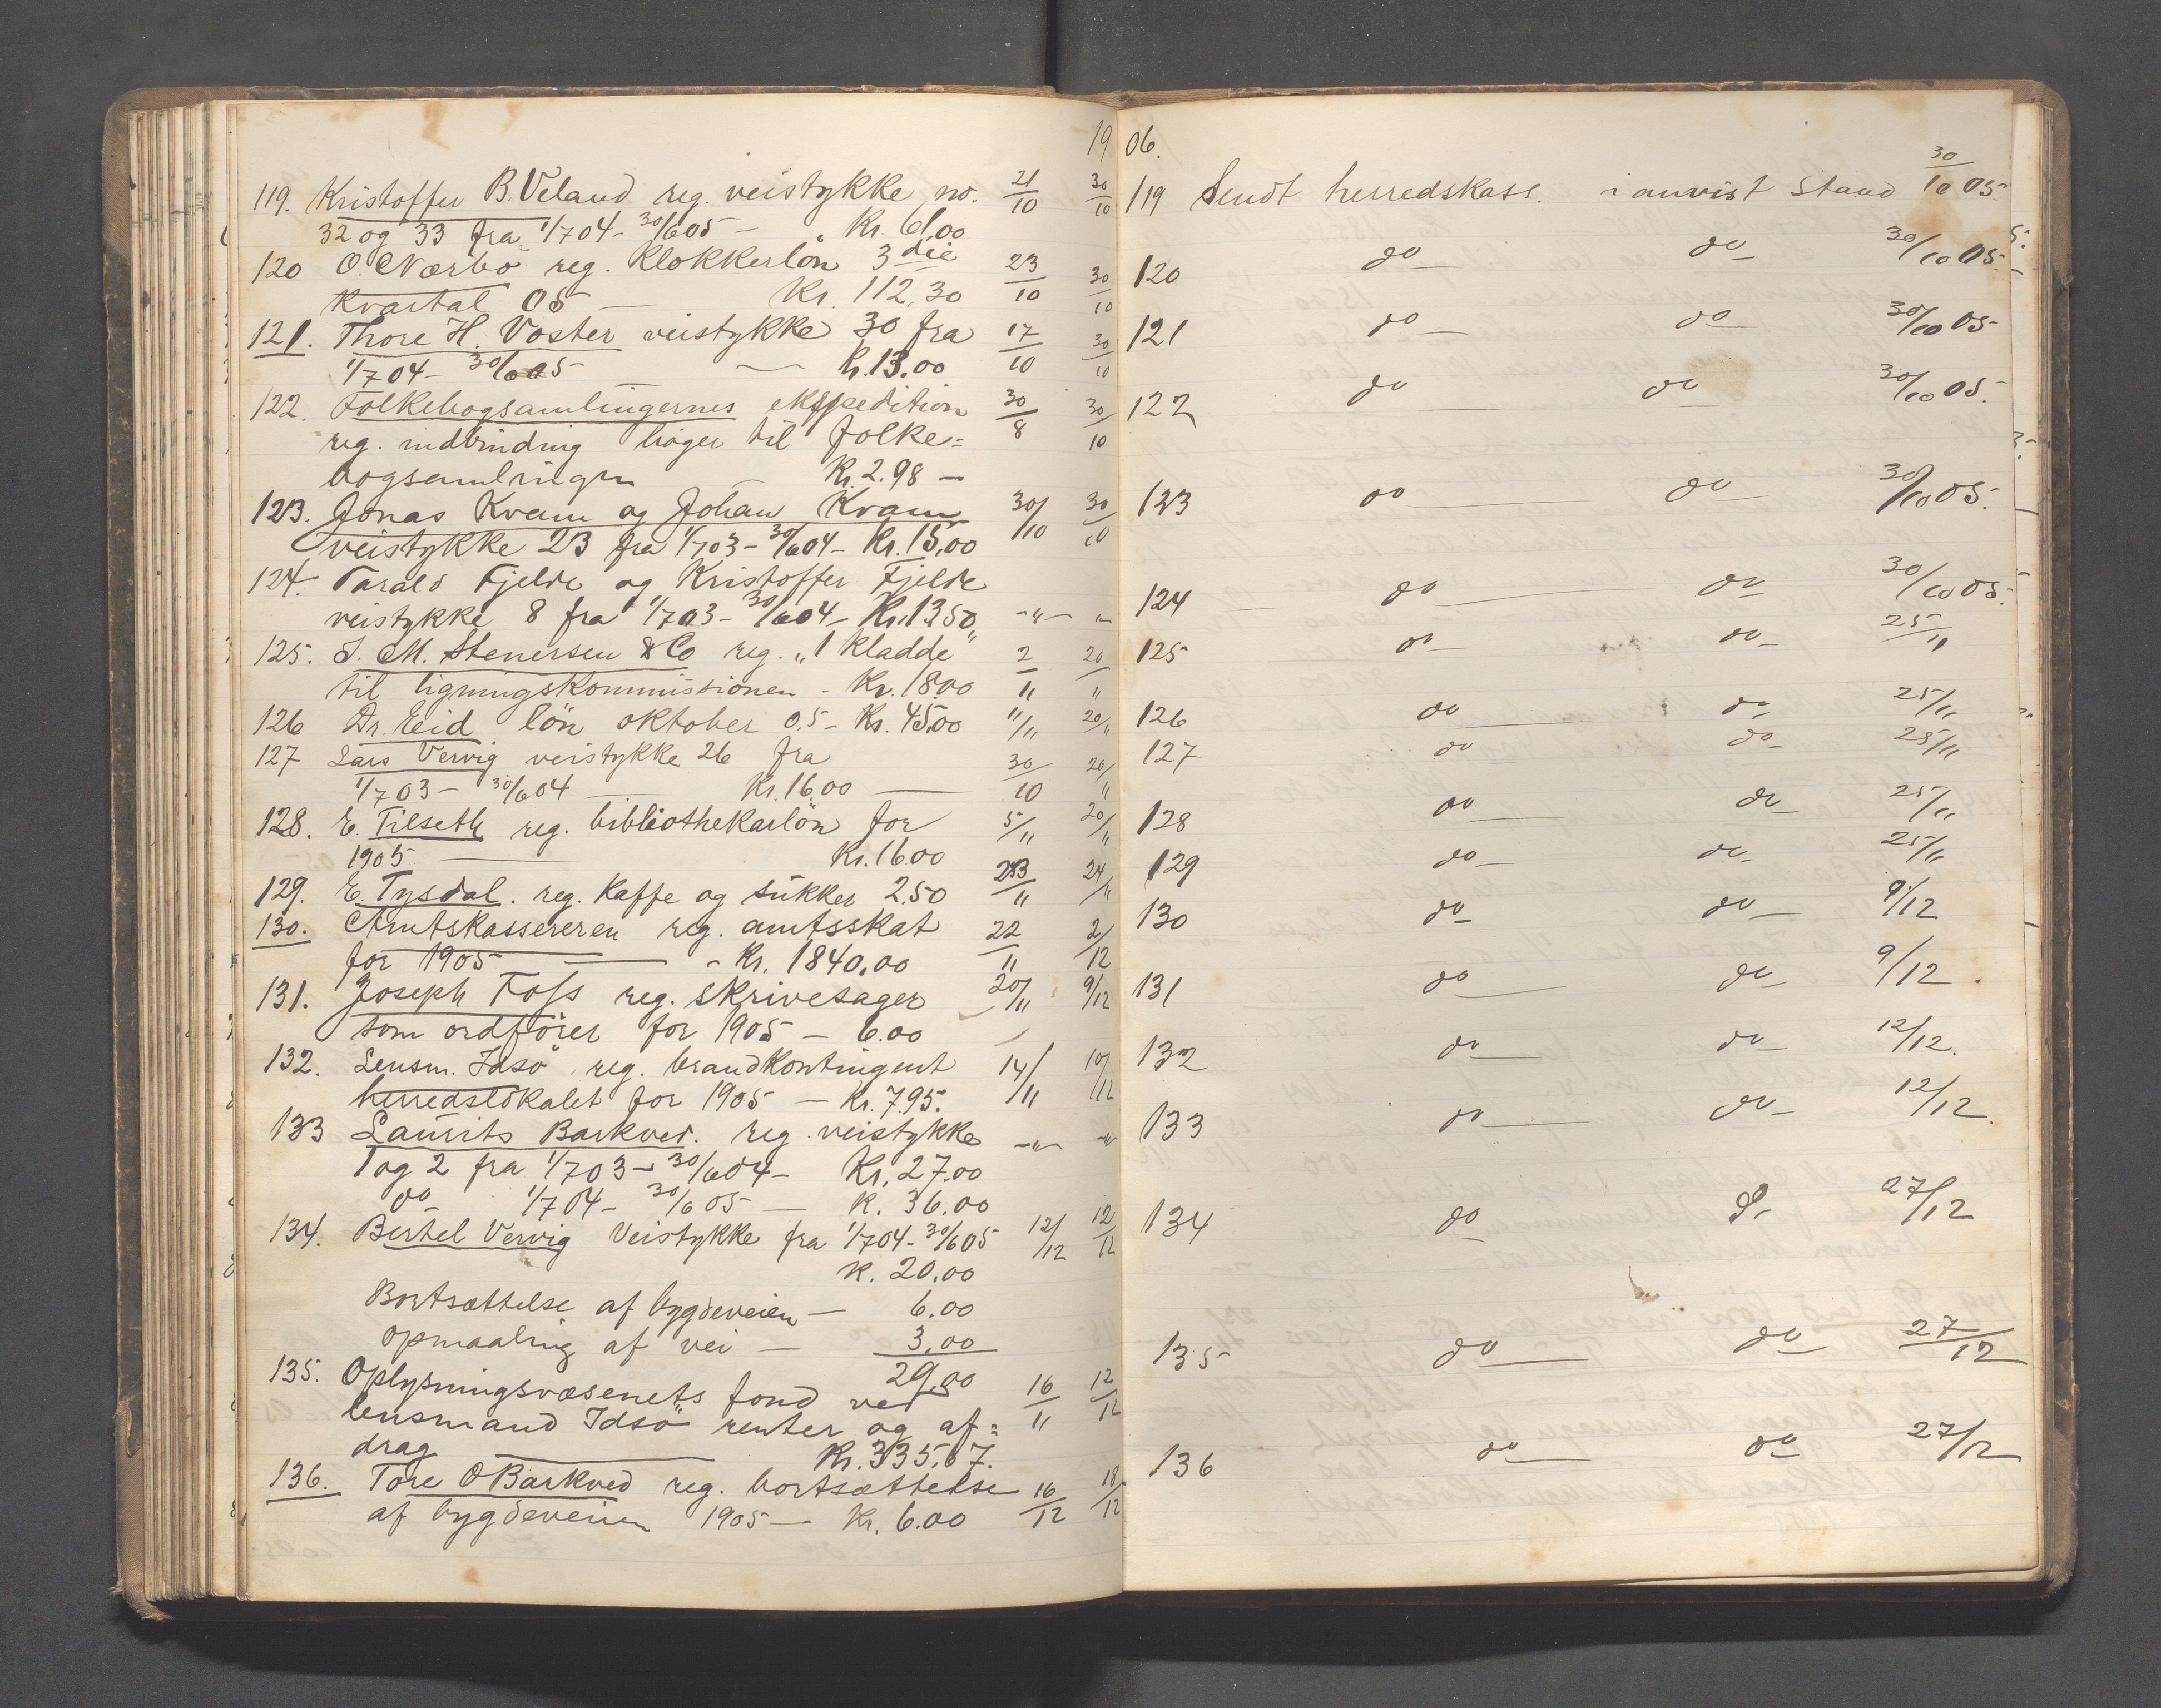 1906.
119. Kristoffer B. Veland reg. veistykke no. 21/10 30/10
32 og 33 fra 1/7 04 - 30/6 05 - Kr. 61,00
120 O. Nærbø reg. Klokkerlön 3die 23/10 30/10
Kvartal 05 — Kr. 112,30
121. Thore H. Voster veistykke 30 fra 17/10 30/10
1/7 04 - 30/6 05 — Kr. 13.00
122. Folkebogsamlingernes ekspedition 30/8 30/10
reg. indbinding böger til folke=
bogsamlingen — Kr. 2.98 —
123. Jonas Kvam og Johan Kvam 30/10 30/10
veistykke 23 fra 1/7 03 - 30/6 04 - Kr. 15,00
124. Tarald Fjelde og Kristoffer Fjelde
veistykke 8 fra 1/7 03 - 30/6 04 - Kr. 13,50 -"- "
125. J. M. Stenersen & Co reg. „1 Kladde" 2/11 20/11
til ligningskommissionen - Kr. 18.00
126 Dr. Eid lön oktober 05 - Kr. 45,00 11/11 20/11
127 Lars Vervig veistykke 26 fra
1/7 03 - 30/6 04 — Kr. 16.00 — 30/10 20/11
128. E. Tilseth reg. bibliothekarlön for 5/11 20/11
1905 — Kr. 16.00
129. E. Tysdal. reg. Kaffe og sukker 2.50 23/11 24/11
130. Amtskassereren reg. amtsskat 22/11 2/12
for 1905 — - Kr. 1840.00
131. Joseph Foss reg. skrivesager 20/11 9/12
som ordförer for 1905 - 6.00
132. Lensm. Idsö reg. brandkontingent 14/11 10/12
herredslokalet for 1905 - Kr. 7.95.
133 Laurits Barkved. reg. veistykke -"- -"-
1 og 2 fra 1/7 03 - 30/6 04 - Kr. 27.00
do 1/7 04 - 30/6 05 — K. 36.00
134. Bertel Vervig Veistykke fra 1/7 04 - 30/6 05 12/12 12/12
K. 20.00
Bortsættelse af bygdeveien - 6.00
Opmaaling af vei — 3,00
29,00
135. Oplysningsvæsenets fond ved 16/11 12/12
lensmand Idsö renter og af=
drag — Kr. 335,67.
136. Tore O Barkved reg. bortsættelse 16/12 18/12
af bygdeveien 1905 - Kr. 6.00
119 Sendt herredskass. i anvist Stand 30/10 05.
120 do — do — 30/10 05.
121 do — do — 30/10 05
122 do — do — 30/10 05.
123 do — do — 30/10 05.
124 do — do — 30/10 05.
125 do — do — 25/11
126 do — do — 25/11
127 do do — 25/11
128 do — do — 25/11
129 do — do — 25/11
130 do — do — 9/12
131 do — do — 9/12.
132 do — do — 12/12.
133 do — do — 12/12.
134 do — 27/12
135 do — do — 27/12
136 do — do 27/12